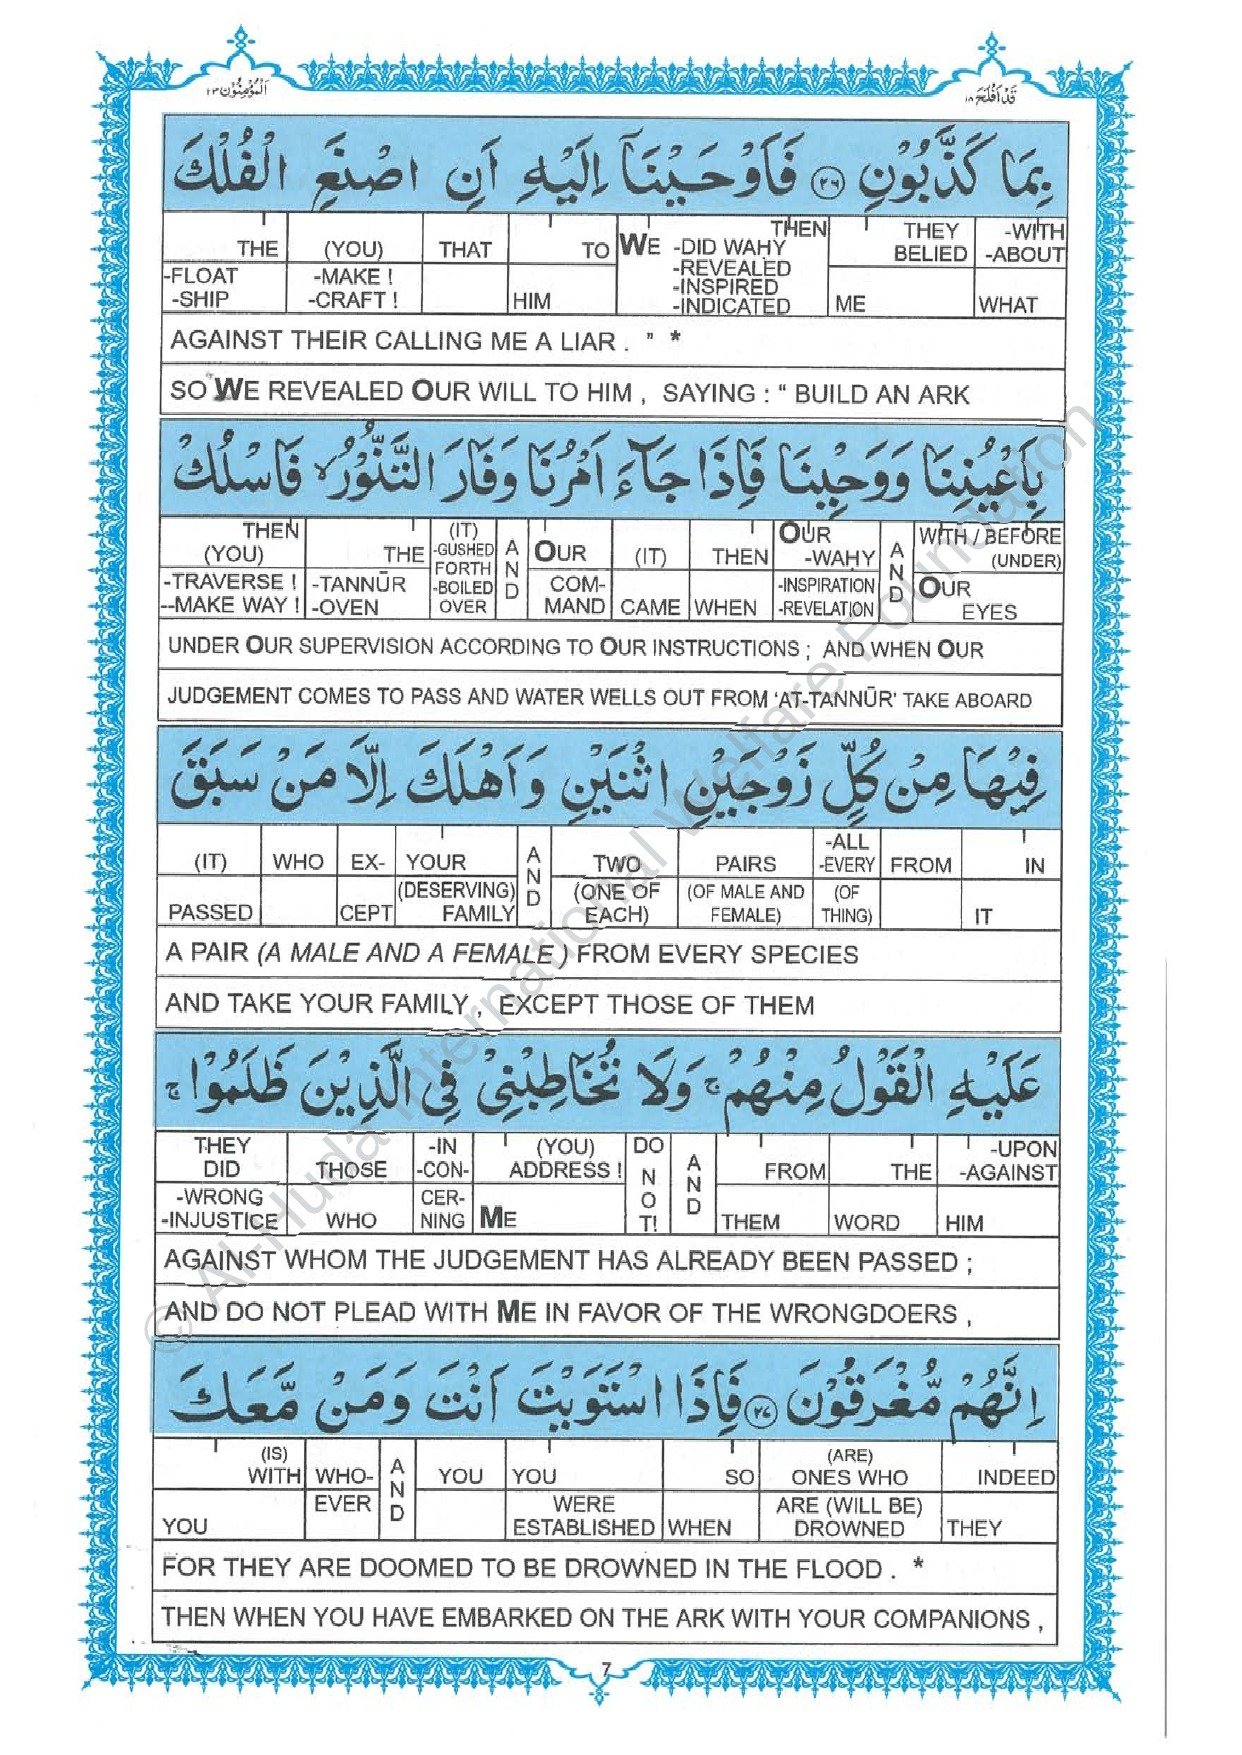 المؤمنون ٢٣
قد افلح ١٨
بِمَا كَذَّبُوْنِ ﴿۲۶﴾ فَاَوْحَيْنَاۤ اِلَيْهِ اَنِ اصْنَعِ الْفُلْكَ
THE (YOU) THAT TO WE -DID WAHY THEN THEY BELIED -WITH -ABOUT
-FLOAT -SHIP -MAKE ! -CRAFT ! HIM -REVEALED -INSPIRED -INDICATED ME WHAT
AGAINST THEIR CALLING ME A LIAR . ” *
SO WE REVEALED OUR WILL TO HIM , SAYING : “ BUILD AN ARK
بِاَعْيُنِنَا وَوَحْيِنَا فَاِذَا جَآءَ اَمْرُنَا وَفَارَ التَّنُّوْرُ ۙ فَاسْلُكْ
THEN (YOU) THE (IT) -GUSHED FORTH AND OUR (IT) THEN OUR -WAHY AND WITH / BEFORE (UNDER)
-TRAVERSE ! --MAKE WAY ! -TANNŪR -OVEN -BOILED OVER COM- MAND CAME WHEN -INSPIRATION -REVELATION OUR EYES
UNDER OUR SUPERVISION ACCORDING TO OUR INSTRUCTIONS ; AND WHEN OUR
JUDGEMENT COMES TO PASS AND WATER WELLS OUT FROM ‘AT-TANNŪR’ TAKE ABOARD
فِيْهَا مِنْ كُلٍّ زَوْجَيْنِ اثْنَيْنِ وَاَهْلَكَ اِلَّا مَنْ سَبَقَ
(IT) WHO EX- YOUR AND TWO PAIRS -ALL -EVERY FROM IN
PASSED CEPT (DESERVING) FAMILY (ONE OF EACH) (OF MALE AND FEMALE) (OF THING) IT
A PAIR (A MALE AND A FEMALE) FROM EVERY SPECIES
AND TAKE YOUR FAMILY , EXCEPT THOSE OF THEM
عَلَيْهِ الْقَوْلُ مِنْهُمْ ۚ وَلَا تُخَاطِبْنِىْ فِى الَّذِيْنَ ظَلَمُوْا ۚ
THEY DID THOSE -IN -CON- (YOU) ADDRESS ! DO NOT! AND FROM THE -UPON -AGAINST
-WRONG -INJUSTICE WHO CER- NING ME THEM WORD HIM
AGAINST WHOM THE JUDGEMENT HAS ALREADY BEEN PASSED ;
AND DO NOT PLEAD WITH ME IN FAVOR OF THE WRONGDOERS ,
اِنَّهُمْ مُّغْرَقُوْنَ ﴿۲۷﴾ فَاِذَا اسْتَوَيْتَ اَنْتَ وَمَنْ مَّعَكَ
(IS) WITH WHO- AND YOU YOU SO (ARE) ONES WHO INDEED
YOU EVER WERE ESTABLISHED WHEN ARE (WILL BE) DROWNED THEY
FOR THEY ARE DOOMED TO BE DROWNED IN THE FLOOD . *
THEN WHEN YOU HAVE EMBARKED ON THE ARK WITH YOUR COMPANIONS ,
7
© Al-Huda International Welfare Foundation